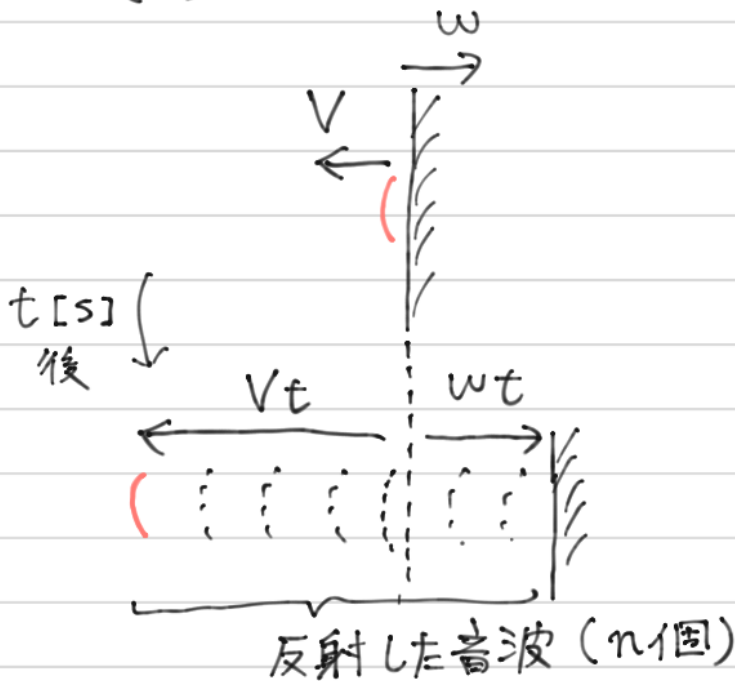 w
V
t[s]
後
Vt
wt
反射した音波(n個)